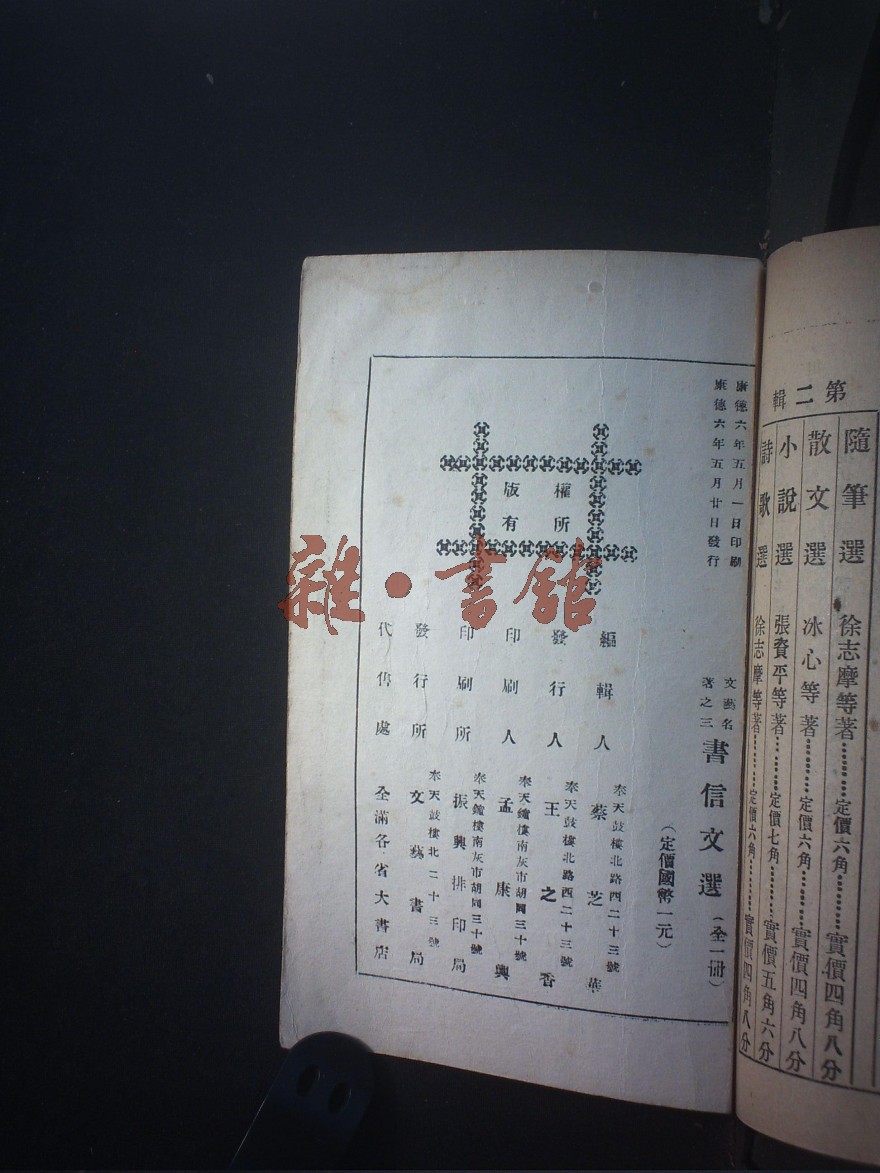 第二輯
隨筆選 徐志摩等著………定價六角………實價四角八分
散文選 冰心等著………定價六角………實價四角八分
小說選 張資平等著………定價七角………實價五角六分
詩歌選 徐志摩等著………定價六角………實價四角八分
康德六年五月一日印刷
康德六年五月廿日發行
文藝名
著之三
書信文選（全一册）
（定價國幣一元）
權所
版有
奉天鼓樓北路西二十三號
編輯人 蔡芝華
奉天鼓樓北路西二十三號
發行人 王之香
奉天鐘樓南灰市胡同三十號
印刷人 孟康興
奉天鐘樓南灰市胡同三十號
印刷所 振興排印局
奉天鼓樓北二十三號
發行所 文藝書局
代售處 全滿各省大書店
雜·書館